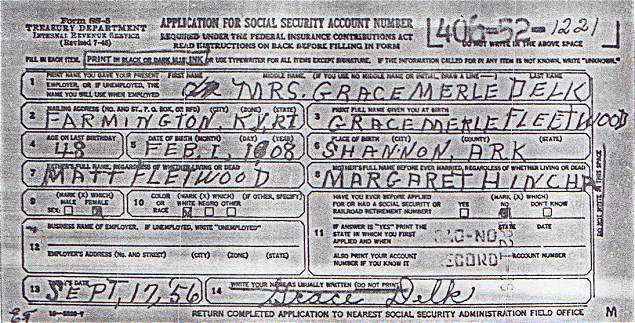 Form SS-5
TREASURY DEPARTMENT
INTERNAL REVENUE SERVICE
(Revised 7-48)
APPLICATION FOR SOCIAL SECURITY ACCOUNT NUMBER
REQUIRED UNDER THE FEDERAL INSURANCE CONTRIBUTIONS ACT
READ INSTRUCTIONS ON BACK BEFORE FILLING IN FORM
406-52-1221
DO NOT WRITE IN THE ABOVE SPACE
FILL IN EACH ITEM. PRINT IN BLACK OR DARK BLUE INK OR USE TYPEWRITER FOR ALL ITEMS EXCEPT SIGNATURE. IF THE INFORMATION CALLED FOR IN ANY ITEM IS NOT KNOWN, WRITE "UNKNOWN."
1 PRINT NAME YOU GAVE YOUR PRESENT EMPLOYER, OR IF UNEMPLOYED, THE NAME YOU WILL USE WHEN EMPLOYED
FIRST NAME MIDDLE NAME (IF YOU USE NO MIDDLE NAME OR INITIAL, DRAW A LINE —) LAST NAME
MRS. GRACE MERLE DELK
2 MAILING ADDRESS (NO. AND ST., P. O. BOX, OR RFD) (CITY) (ZONE) (STATE)
FARMINGTON, KY, R1
3 PRINT FULL NAME GIVEN YOU AT BIRTH
GRACE MERLE FLEETWOOD
4 AGE ON LAST BIRTHDAY
48
5 DATE OF BIRTH (MONTH) (DAY) (YEAR)
FEB. 1 1908
6 PLACE OF BIRTH (CITY) (COUNTY) (STATE)
SHANNON, ARK
7 FATHER'S FULL NAME, REGARDLESS OF WHETHER LIVING OR DEAD
MATT FLETWOOD
8 MOTHER'S FULL NAME BEFORE EVER MARRIED, REGARDLESS OF WHETHER LIVING OR DEAD
MARGARET HINCH
9 SEX: (MARK (X) WHICH) MALE FEMALE
10 COLOR OR RACE (MARK (X) WHICH) (IF OTHER, SPECIFY) WHITE NEGRO OTHER
HAVE YOU EVER BEFORE APPLIED FOR OR HAD A SOCIAL SECURITY OR RAILROAD RETIREMENT NUMBER? (MARK (X) WHICH) YES NO DON'T KNOW
11 IF ANSWER IS "YES" PRINT THE STATE IN WHICH YOU FIRST APPLIED AND WHEN
STATE DATE
ALSO PRINT YOUR ACCOUNT NUMBER IF YOU KNOW IT
ACCOUNT NUMBER
BUSINESS NAME OF EMPLOYER. IF UNEMPLOYED, WRITE "UNEMPLOYED"
12 EMPLOYER'S ADDRESS (NO. AND STREET) (CITY) (ZONE) (STATE)
DO NOT WRITE IN THIS SPACE
13 TODAY'S DATE
SEPT, 17, 56
14 WRITE YOUR NAME AS USUALLY WRITTEN (DO NOT PRINT)
Grace Delk
RETURN COMPLETED APPLICATION TO NEAREST SOCIAL SECURITY ADMINISTRATION FIELD OFFICE M